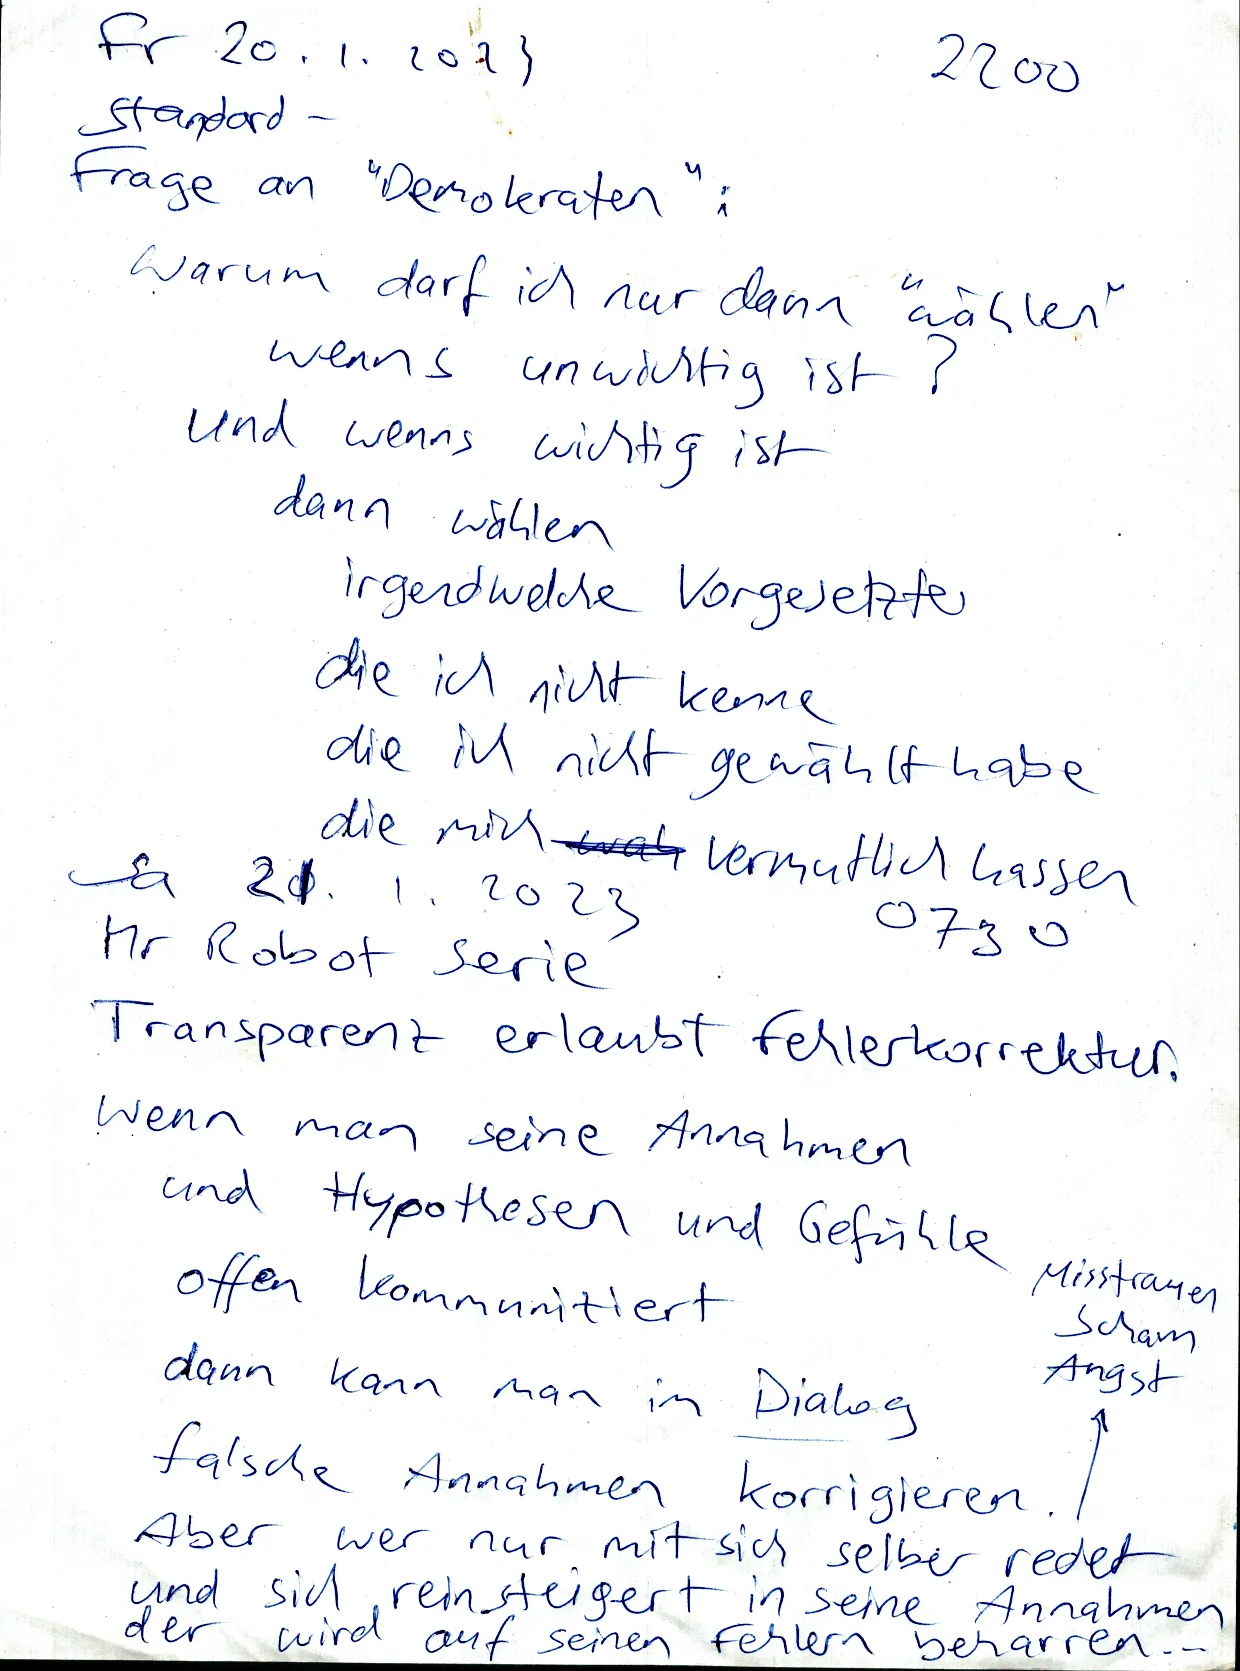 Fr 20.1.2023 2200
Standard-
Frage an "Demokraten":
Warum darf ich nur dann "wählen"
wenns unwichtig ist?
Und wenns wichtig ist
dann wählen
irgendwelche Vorgesetzte
die ich nicht kenne
die ich nicht gewählt habe
die mich wäh vermutlich hassen
Sa 21.1.2023 0730
Mr Robot Serie
Transparenz erlaubt Fehlerkorrektur.
Wenn man seine Annahmen
und Hypothesen und Gefühle
offen kommuniziert
dann kann man in Dialog
falsche Annahmen korrigieren.
Misstrauen
Scham
Angst
Aber wer nur mit sich selber redet
und sich reinsteigert in seine Annahmen
der wird auf seinen Fehlern beharren...